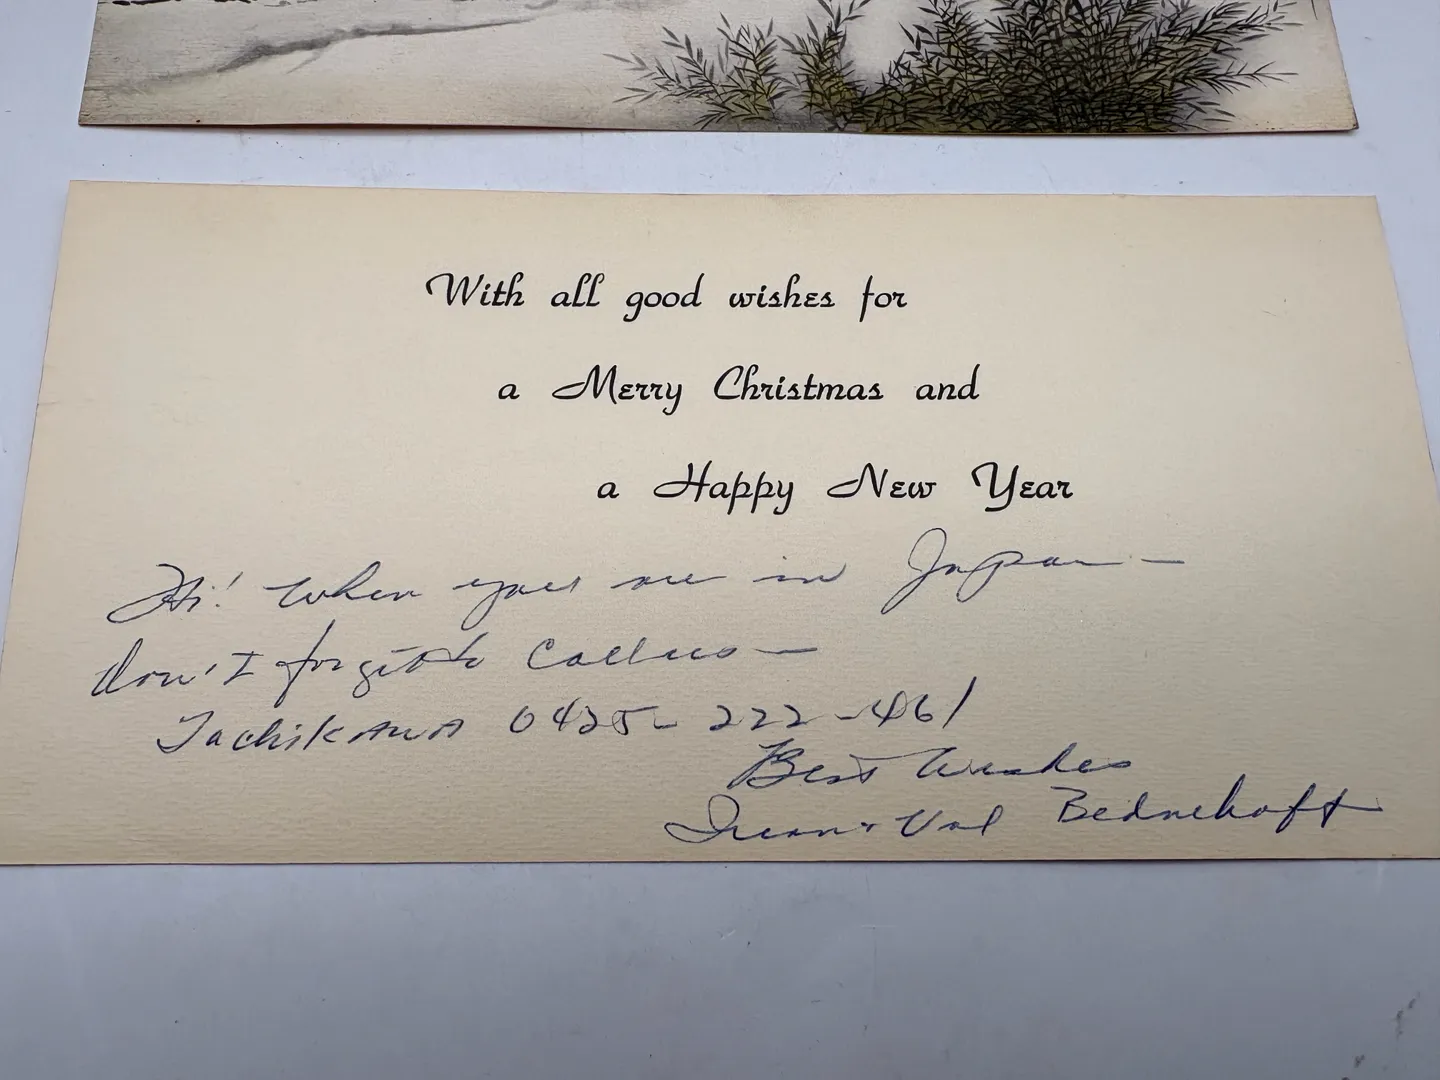 With all good wishes for
a Merry Christmas and
a Happy New Year
Hi! When you are in Japan —
don't forget to call us —
Tachikawa 0425-222-461
Best Wishes
& Val Bednekoff